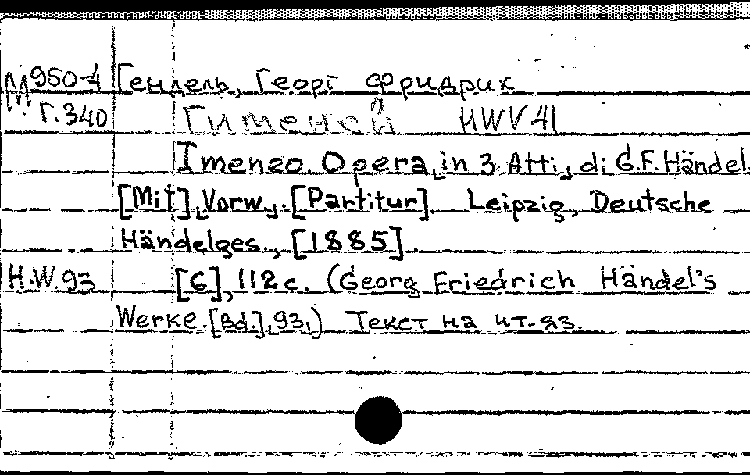 М950-4 Гендель, Георг Фридрих
Г.340 Гименей HWV 41
Imeneo. Opera in 3 Atti, di G.F. Händel.
[Mit] Vorw., [Partitur]. Leipzig, Deutsche
Händelges., [1885].
H.W.93 [6], 112 с. (Georg Friedrich Händel's
Werke. [Bd.], 93.) Текст на ит. яз.